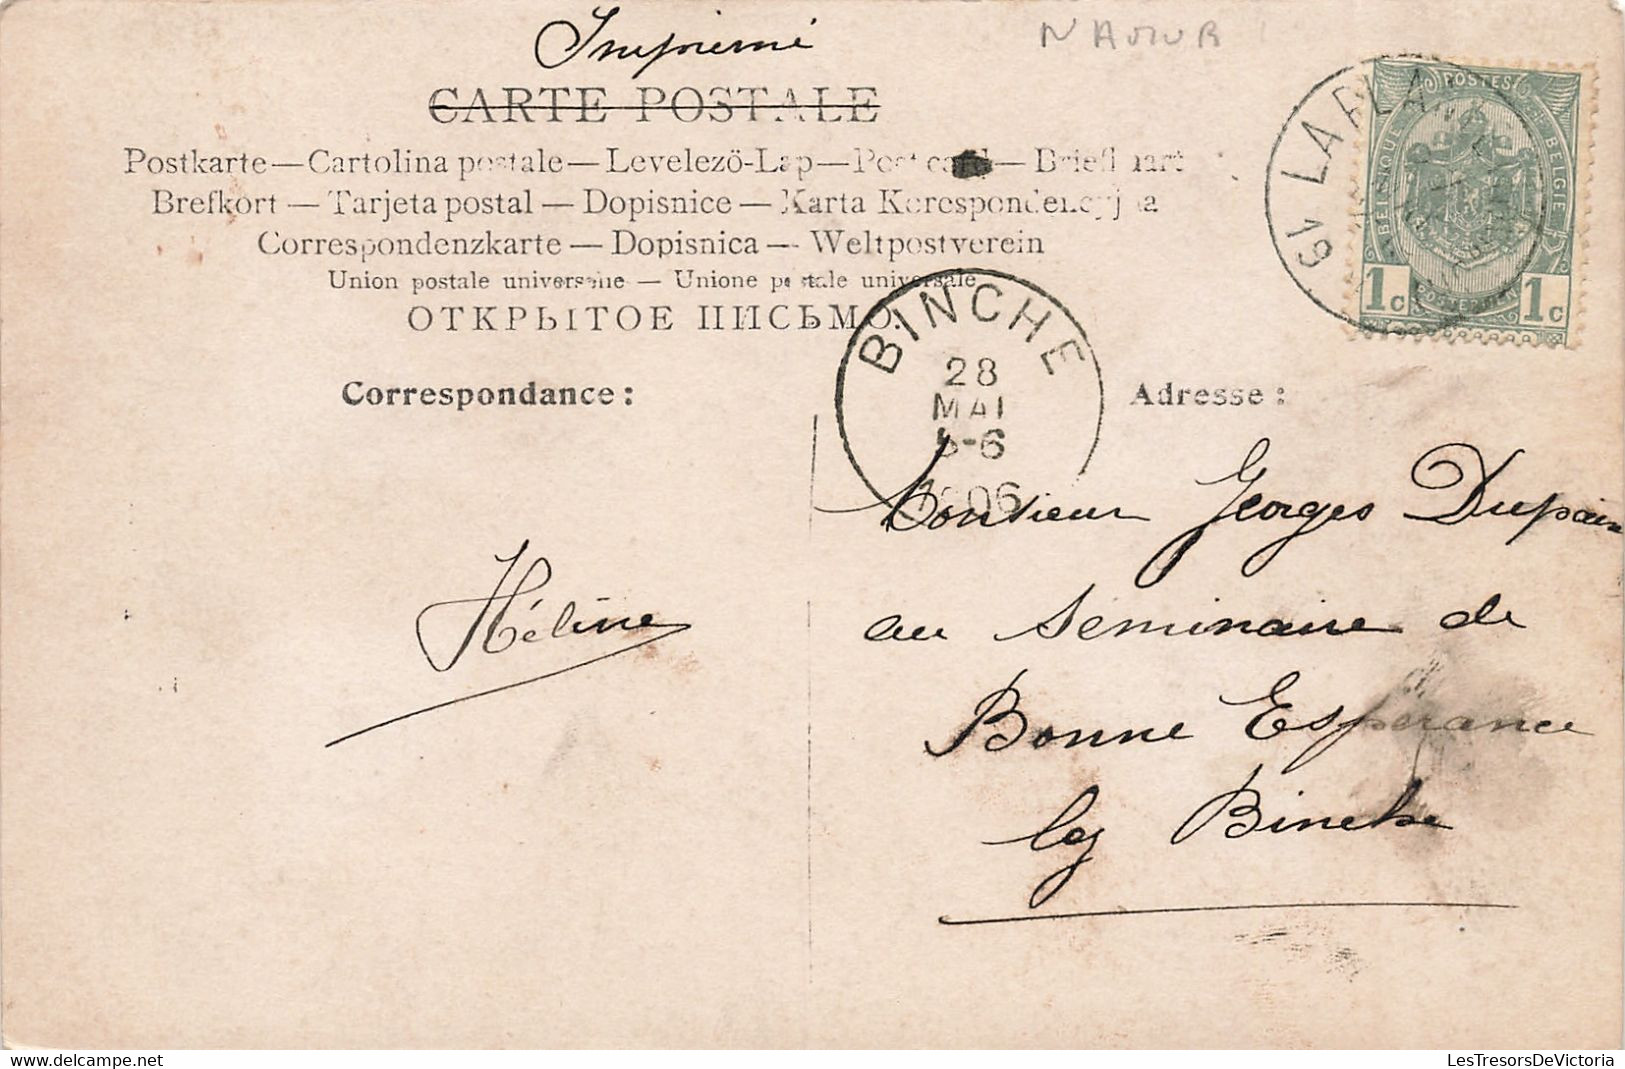 Imprimé
NAMUR
CARTE POSTALE
Postkarte — Cartolina postale — Levelező-Lap — Post card — Brief
Brefkort — Tarjeta postal — Dopisnice — Karta Korespondencyjna
Correspondenzkarte — Dopisnica — Weltpostverein
Union postale universelle — Unione postale universale
ОТКРЫТОЕ ПИСЬМО.
POSTES
BELGIQUE
BELGIË
POSTERIJEN
1c
1c
LA PLA
BINCHE
28
MAI
5-6
1906
Correspondance :
Adresse :
Monsieur Georges Dupain
au Séminaire de
Bonne Espérance
lez Binche
Hélène
LesTresorsDeVictoria
www.delcampe.net